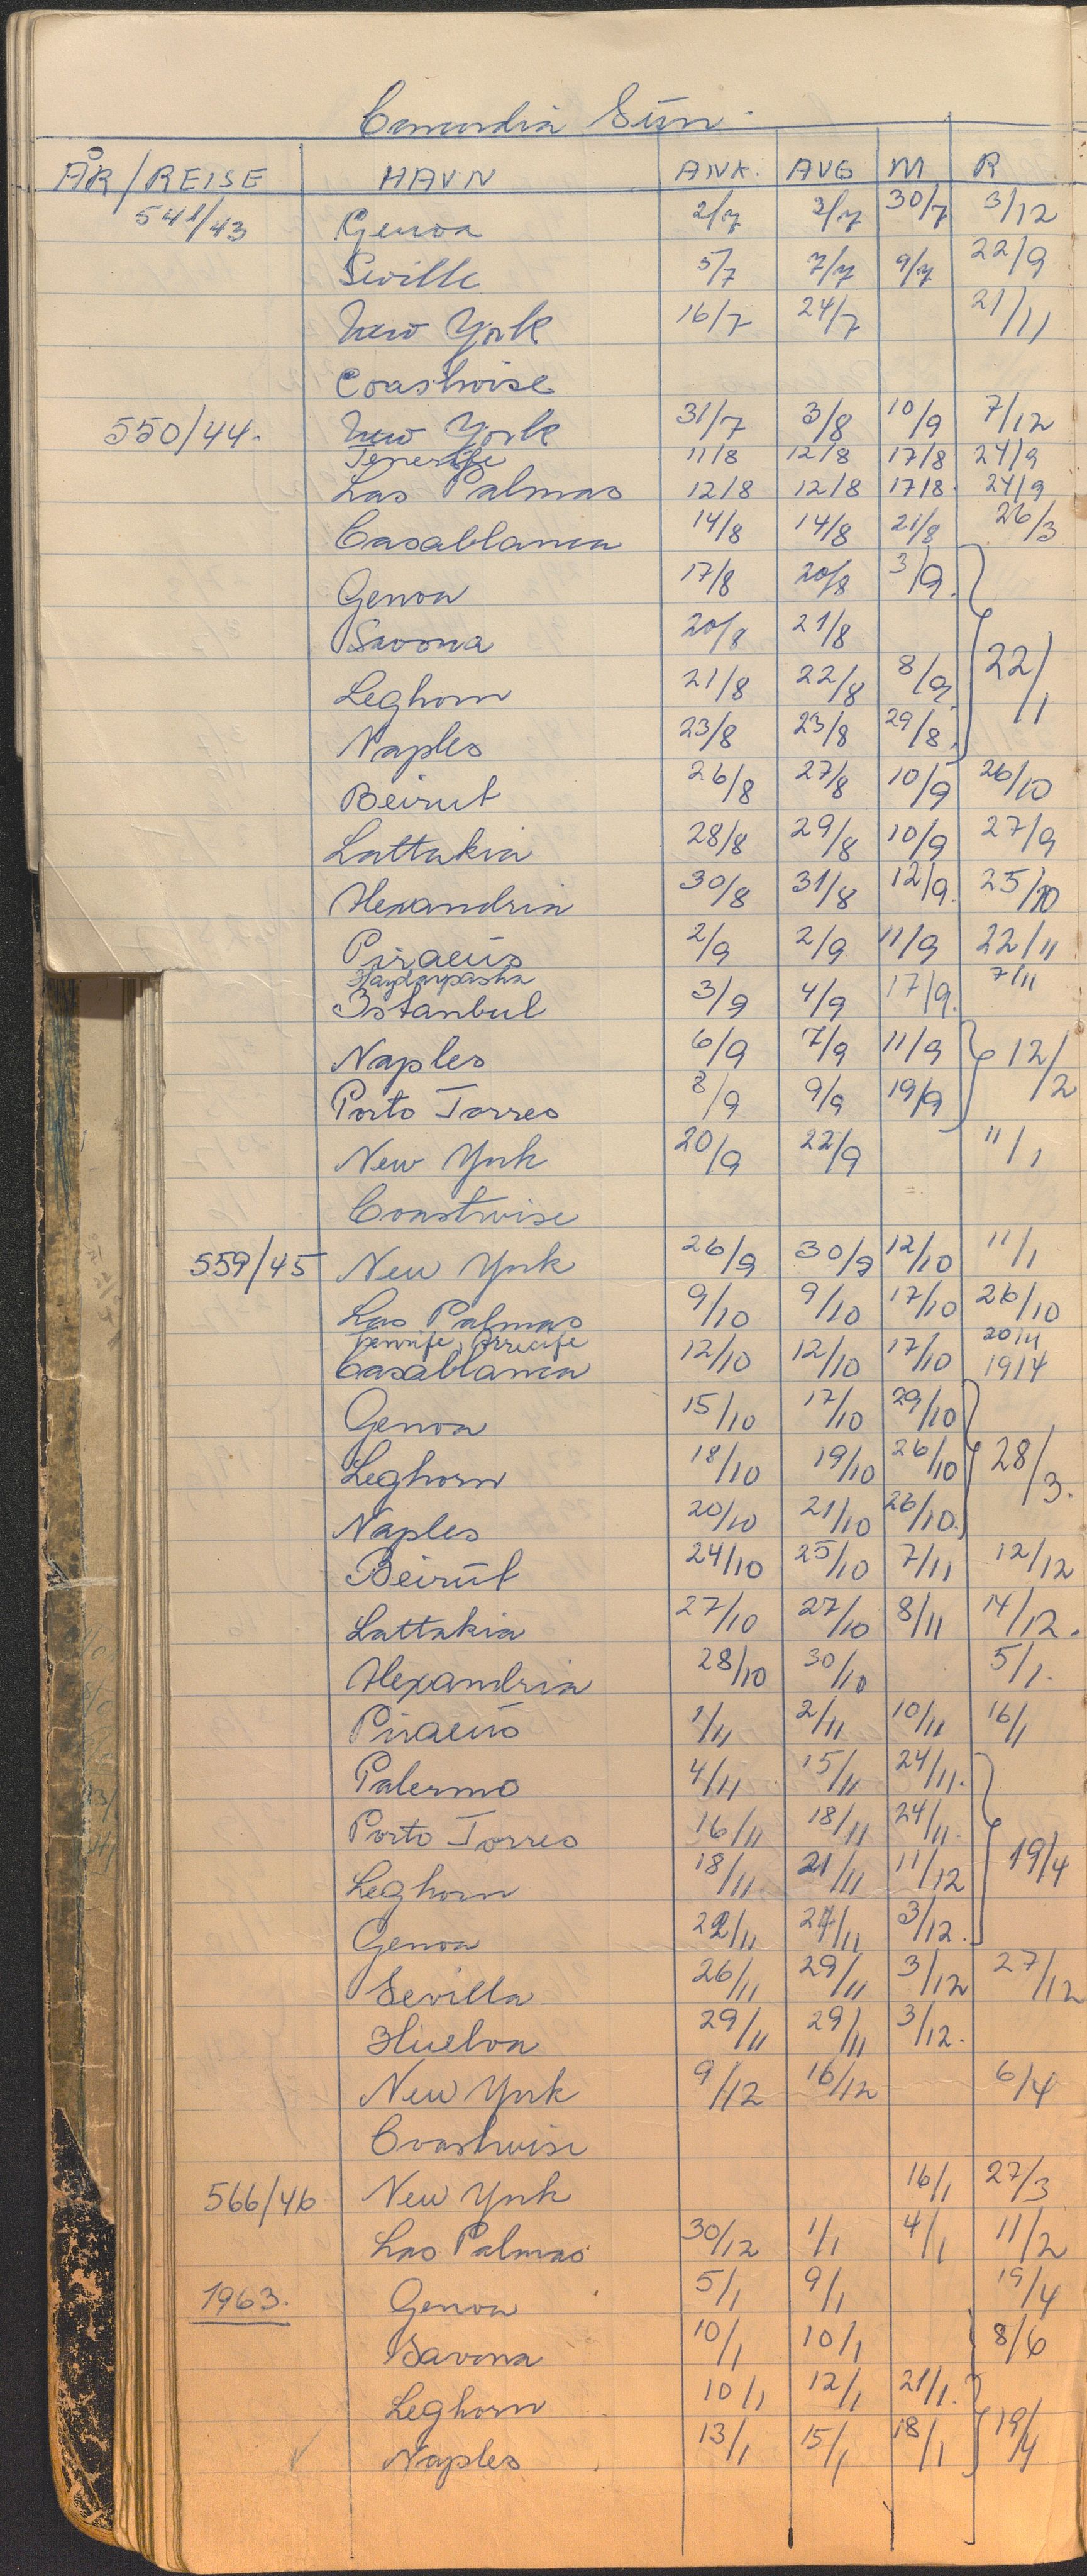 Concordia Sun.
ÅR/REISE HAVN ANK. AVG M R
541/43 Genoa 2/7 3/7 30/7 3/12
Seville 5/7 7/7 9/7 22/9
New York 16/7 24/7 21/11
Coastwise
550/44. New York 31/7 3/8 10/9 7/12
Tenerife 11/8 12/8 17/8 24/9
Las Palmas 12/8 12/8 17/8 24/9
Casablanca 14/8 14/8 21/8 26/3
Genoa 17/8 20/8 3/9.
Savona 20/8 21/8
Leghorn 21/8 22/8 8/9 22/1
Naples 23/8 23/8 29/8.
Beirut 26/8 27/8 10/9 26/10
Lattakia 28/8 29/8 10/9 27/9
Alexandria 30/8 31/8 12/9. 25/10
Piraeus 2/9 2/9 11/9 22/11
Haydarpasha 7/11
Istanbul 3/9 4/9 17/9.
Naples 6/9 7/9 11/9 12/2
Porto Torres 8/9 9/9 19/9
New York 20/9 22/9 11/1
Coastwise
559/45 New York 26/9 30/9 12/10 11/1
Las Palmas 9/10 9/10 17/10 26/10
Tenerife, Arrecife 20/11
Casablanca 12/10 12/10 17/10 19/4
Genoa 15/10 17/10 29/10
Leghorn 18/10 19/10 26/10 28/3.
Naples 20/10 21/10 26/10.
Beirut 24/10 25/10 7/11 12/12
Lattakia 27/10 27/10 8/11 14/12.
Alexandria 28/10 30/10 5/1.
Piraeus 1/11 2/11 10/11 16/1
Palermo 4/11 15/11 24/11.
Porto Torres 16/11 18/11 24/11.
Leghorn 18/11 21/11 11/12 19/4
Genoa 22/11 24/11 3/12.
Sevilla 26/11 29/11 3/12 27/12
Huelva 29/11 29/11 3/12.
New York 9/12 16/12 6/4
Coastwise
566/46 New York 16/1 27/3
Las Palmas 30/12 1/1 4/1 11/2
1963. Genoa 5/1 9/1 19/4
Savona 10/1 10/1 8/6
Leghorn 10/1 12/1 21/1.
Naples 13/1 15/1 18/1 19/4